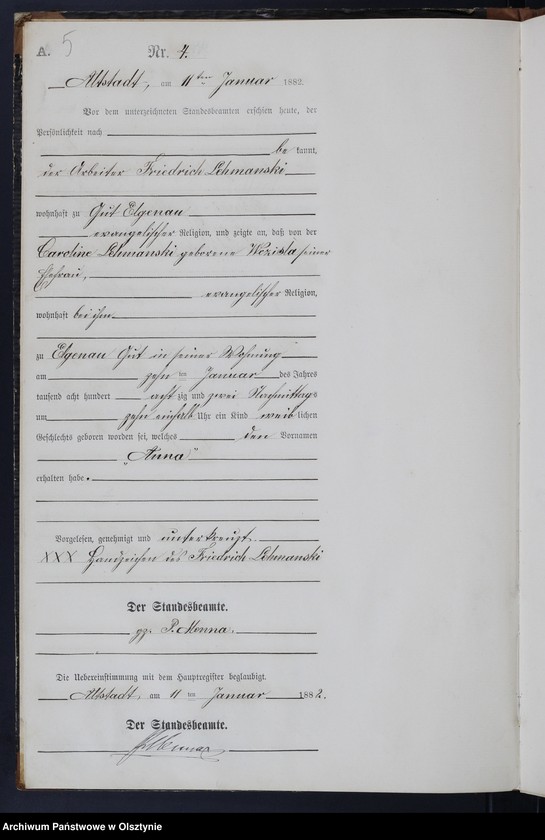 A. 5 Nr. 4.
Altstadt, am 11ten Januar 1882.
Vor dem unterzeichneten Standesbeamten erschien heute, der
Persönlichkeit nach
be kannt,
der Arbeiter Friedrich Lehmanski
wohnhaft zu Gut Elgenau
evangelischer Religion, und zeigte an, daß von der
Caroline Lehmanski geborene seiner
Ehefrau,
evangelischer Religion,
wohnhaft bei ihm
zu Elgenau Gut in seiner Wohnung
am zehn ten Januar des Jahres
tausend acht hundert acht zig und zwei Nachmittags
um zehn einhalb Uhr ein Kind weib lichen
Geschlechts geboren worden sei, welches den Vornamen
„Anna“
erhalten habe.
Vorgelesen, genehmigt und unterkreuzt
XXX Handzeichen des Friedrich Lehmanski
Der Standesbeamte.
gz. P. Monna.
Die Uebereinstimmung mit dem Hauptregister beglaubigt.
Altstadt, am 11 ten Januar 1882.
Der Standesbeamte.
Archiwum Państwowe w Olsztynie